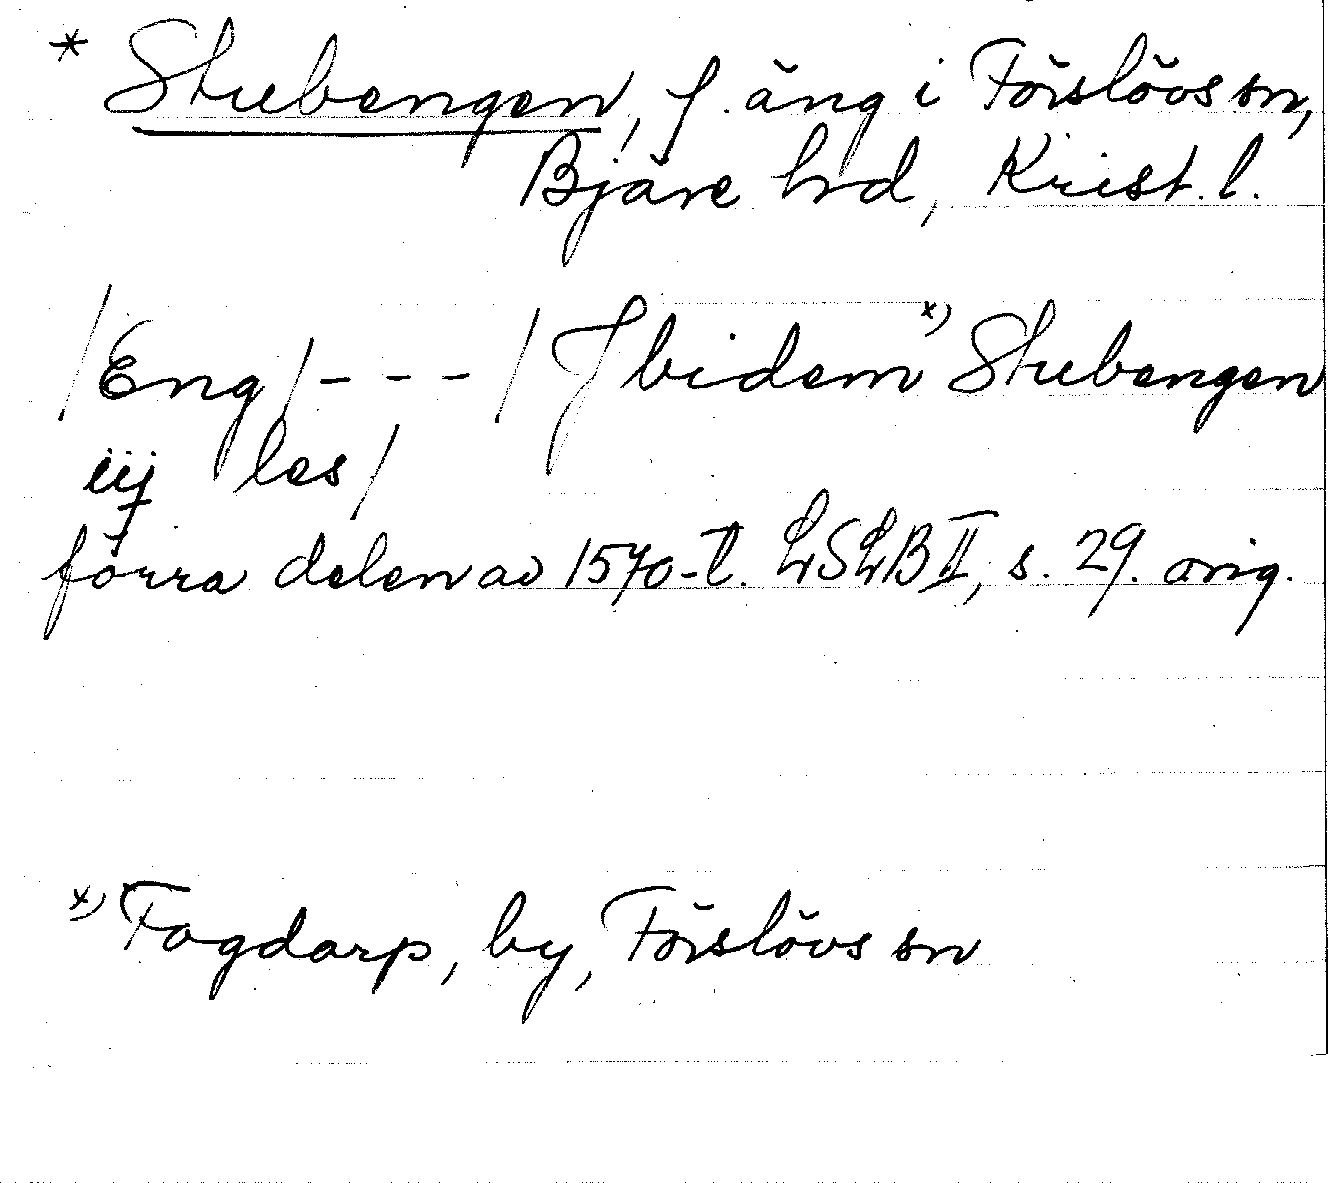 * Stubengen, f. äng i Förslövs sn,
Bjäre hrd, Krist. l.
/Eng/ - - - / Jbidem x) Stubengen
iij les/
förra delen av 1570-t. LSLB II, s. 29. orig.
x) Fogdarp, by, Förslövs sn